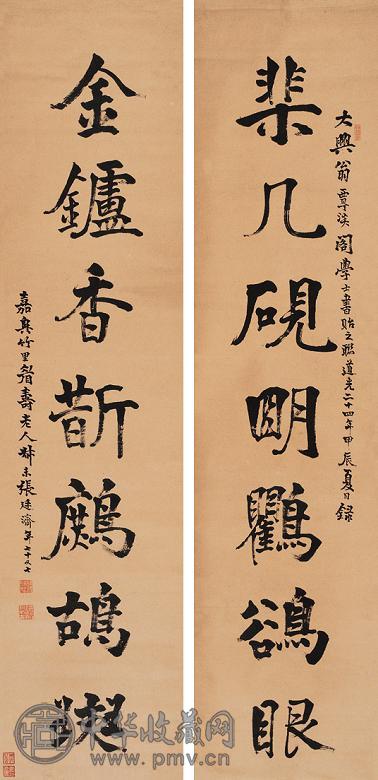 大興翁覃溪閣學士書貽之聯道光二十四年甲辰夏日錄
棐几硯明鸜鵒眼
金鑪香斮鷓鴣
嘉興竹里眉壽老人叔未張廷濟年七十又七
中华收藏网
www.pmv.cn
中华收藏网
www.pmv.cn